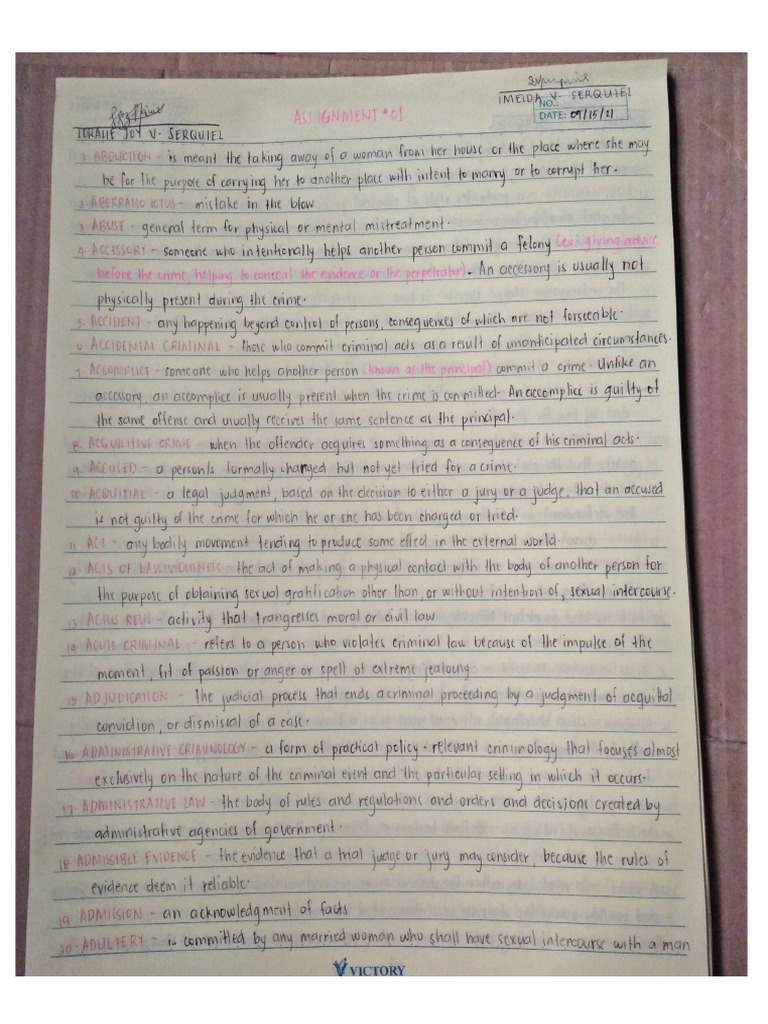 IMELDA V. SERQUIEL
ASSIGNMENT #01
NO.:
LORALIE JOY V. SERQUIEL
DATE: 09/15/21
1. ABDUCTION - is meant the taking away of a woman from her house or the place where she may
be for the purpose of carrying her to another place with intent to marry or to corrupt her.
2. ABERRATIO ICTUS - mistake in the blow
3. ABUSE - general term for physical or mental mistreatment.
4. ACCESSORY - someone who intentionally helps another person commit a felony (ex: giving advice
before the crime, helping to conceal the evidence or the perpetrator). An accessory is usually not
physically present during the crime.
5. ACCIDENT - any happening beyond control of persons, consequences of which are not forseeable.
6. ACCIDENTAL CRIMINAL - those who commit criminal acts as a result of unanticipated circumstances.
7. ACCOMPLICE - someone who helps another person (known as the principal) commit a crime. Unlike an
accessory, an accomplice is usually present when the crime is committed. An accomplice is guilty of
the same offense and usually receives the same sentence as the principal.
8. ACQUISITIVE CRIME - when the offender acquires something as a consequence of his criminal acts.
9. ACCUSED - a person/s formally charged but not yet tried for a crime.
10. ACQUITTAL - a legal judgment, based on the decision to either a jury or a judge, that an accused
is not guilty of the crime for which he or she has been charged or tried.
11. ACT - any bodily movement tending to produce some effect in the external world.
12. ACTS OF LASCIVIOUSNESS - the act of making a physical contact with the body of another person for
the purpose of obtaining sexual gratification other than, or without intention of, sexual intercourse.
13. ACTUS REUS - activity that trangresses moral or civil law
14. ACUTE CRIMINAL - refers to a person who violates criminal law because of the impulse of the
moment, fit of passion or anger or spell of extreme jealousy.
15. ADJUDICATION - the judicial process that ends a criminal proceeding by a judgment of acquittal
conviction, or dismissal of a case.
16. ADMINISTRATIVE CRIMINOLOGY - a form of practical policy - relevant criminology that focuses almost
exclusively on the nature of the criminal event and the particular setting in which it occurs.
17. ADMINISTRATIVE LAW - the body of rules and regulations and orders and decisions created by
administrative agencies of government.
18. ADMISSIBLE EVIDENCE - the evidence that a trial judge or jury may consider, because the rules of
evidence deem it reliable.
19. ADMISSION - an acknowledgment of facts
20. ADULTERY - is committed by any married woman who shall have sexual intercourse with a man
VICTORY